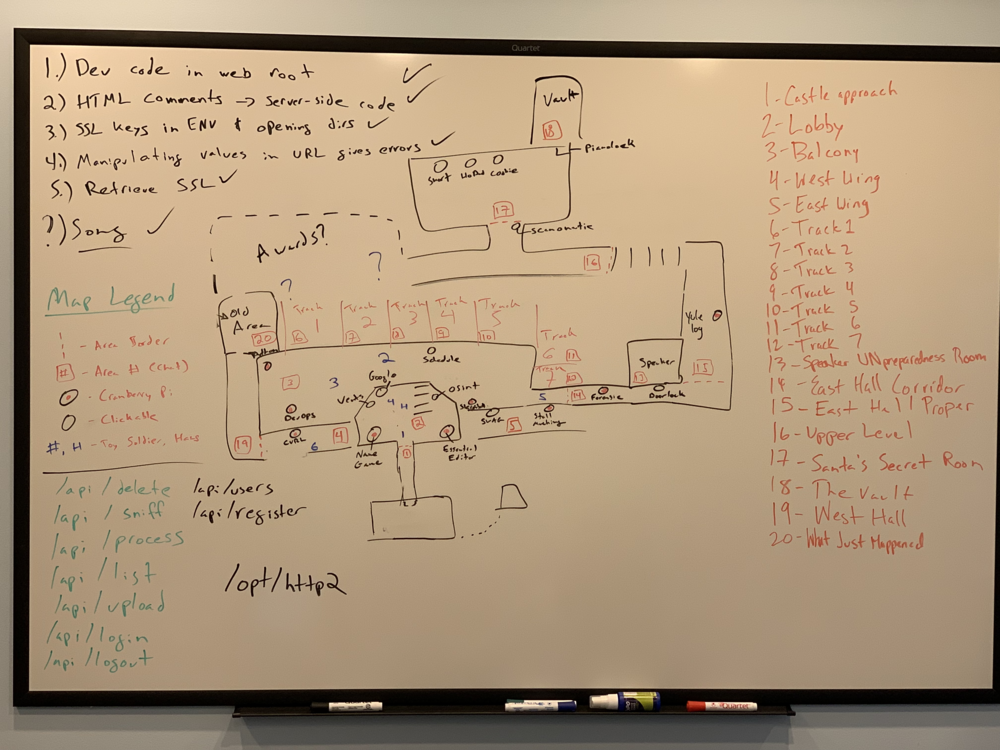 Quartet
1.) Dev code in web root ✓
2.) HTML Comments → server-side code ✓
3.) SSL keys in ENV & opening dirs ✓
4.) Manipulating values in URL gives errors ✓
5.) Retrieve SSL ✓
?) Song ✓
Vault
18
Pianolock
Short
Cookie
17
Scanomatic
16
Awards?
?
?
Old
Area
20
Track
1
6
Track
2
Track
3
Track
4
9
Track
5
10
Track
6
11
Track
7
Yule
log
Speaker
13
15
Doorlock
Python
2
Schedule
3
Google
4
H
OSInt
5
14
Forensic
DevOps
CURL
19
6
4
Name
Game
1
1
Essential
Editor
SWAG
5
Stall
mucking
Map Legend
- Area Border
# - Area # (CHAT)
- Cranberry Pi
- Clickable
#, H - Toy Soldier, Hans
/api/delete
/api/sniff
/api/process
/api/list
/api/upload
/api/login
/api/logout
/api/users
/api/register
/opt/http2
1-Castle approach
2-Lobby
3-Balcony
4-West Wing
5-East Wing
6-Track 1
7-Track 2
8-Track 3
9-Track 4
10-Track 5
11-Track 6
12-Track 7
13-Speaker UNpreparedness Room
14-East Hall Corridor
15-East Hall Proper
16-Upper Level
17-Santa's Secret Room
18-The Vault
19-West Hall
20-What Just Happened
Quartet